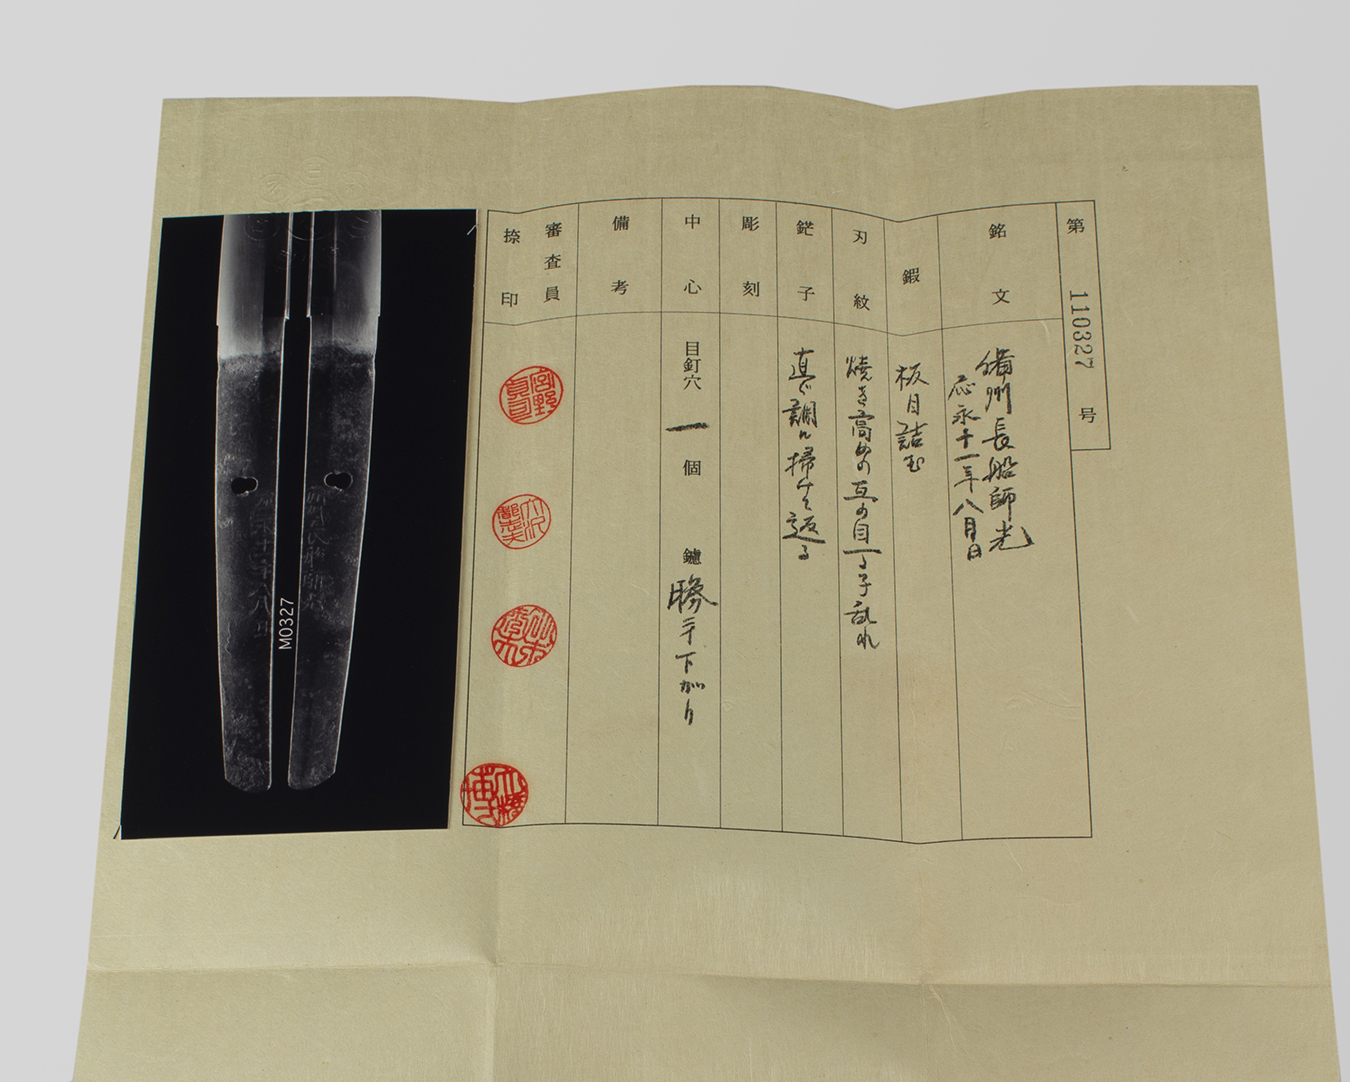 第 110327 号
銘文
備州長船師光
応永十一年八月日
鍜
板目詰む
刃紋
焼き高めの互の目丁子乱れ
鋩子
直ぐ調に掃けて返る
彫刻
中心
目釘穴 一 個 鑢 勝手下がり
備考
審査員
捺印
M0327